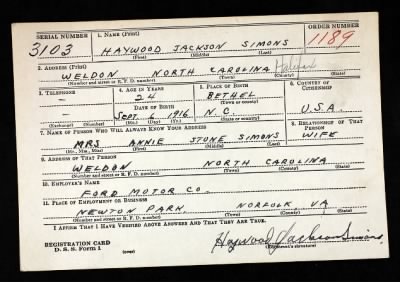 SERIAL NUMBER 1. NAME (Print) ORDER NUMBER
3103 HAYWOOD JACKSON SIMONS 1189
(First) (Middle) (Last)
2. ADDRESS (Print)
WELDON NORTH CAROLINA Halifax
(Number and street or R. F. D. number) (Town) (County) (State)
3. TELEPHONE 4. AGE IN YEARS 5. PLACE OF BIRTH 6. COUNTRY OF CITIZENSHIP
— 24 BETHEL
DATE OF BIRTH (Town or county)
— SEPT. 6 1916 N.C. U.S.A.
(Exchange) (Number) (Mo.) (Day) (Yr.) (State or country)
7. NAME OF PERSON WHO WILL ALWAYS KNOW YOUR ADDRESS 8. RELATIONSHIP OF THAT PERSON
MRS ANNIE STONE SIMONS WIFE
(Mr., Mrs., Miss) (First) (Middle) (Last)
9. ADDRESS OF THAT PERSON
WELDON NORTH CAROLINA
(Number and street or R. F. D. number) (Town) (County) (State)
10. EMPLOYER'S NAME
FORD MOTOR CO.
11. PLACE OF EMPLOYMENT OR BUSINESS
NEWTON PARK, NORFOLK, VA.
(Number and street or R. F. D. number) (Town) (County) (State)
I AFFIRM THAT I HAVE VERIFIED ABOVE ANSWERS AND THAT THEY ARE TRUE.
REGISTRATION CARD
D. S. S. Form 1 (over) Haywood Jackson Simons
(Registrant's signature)